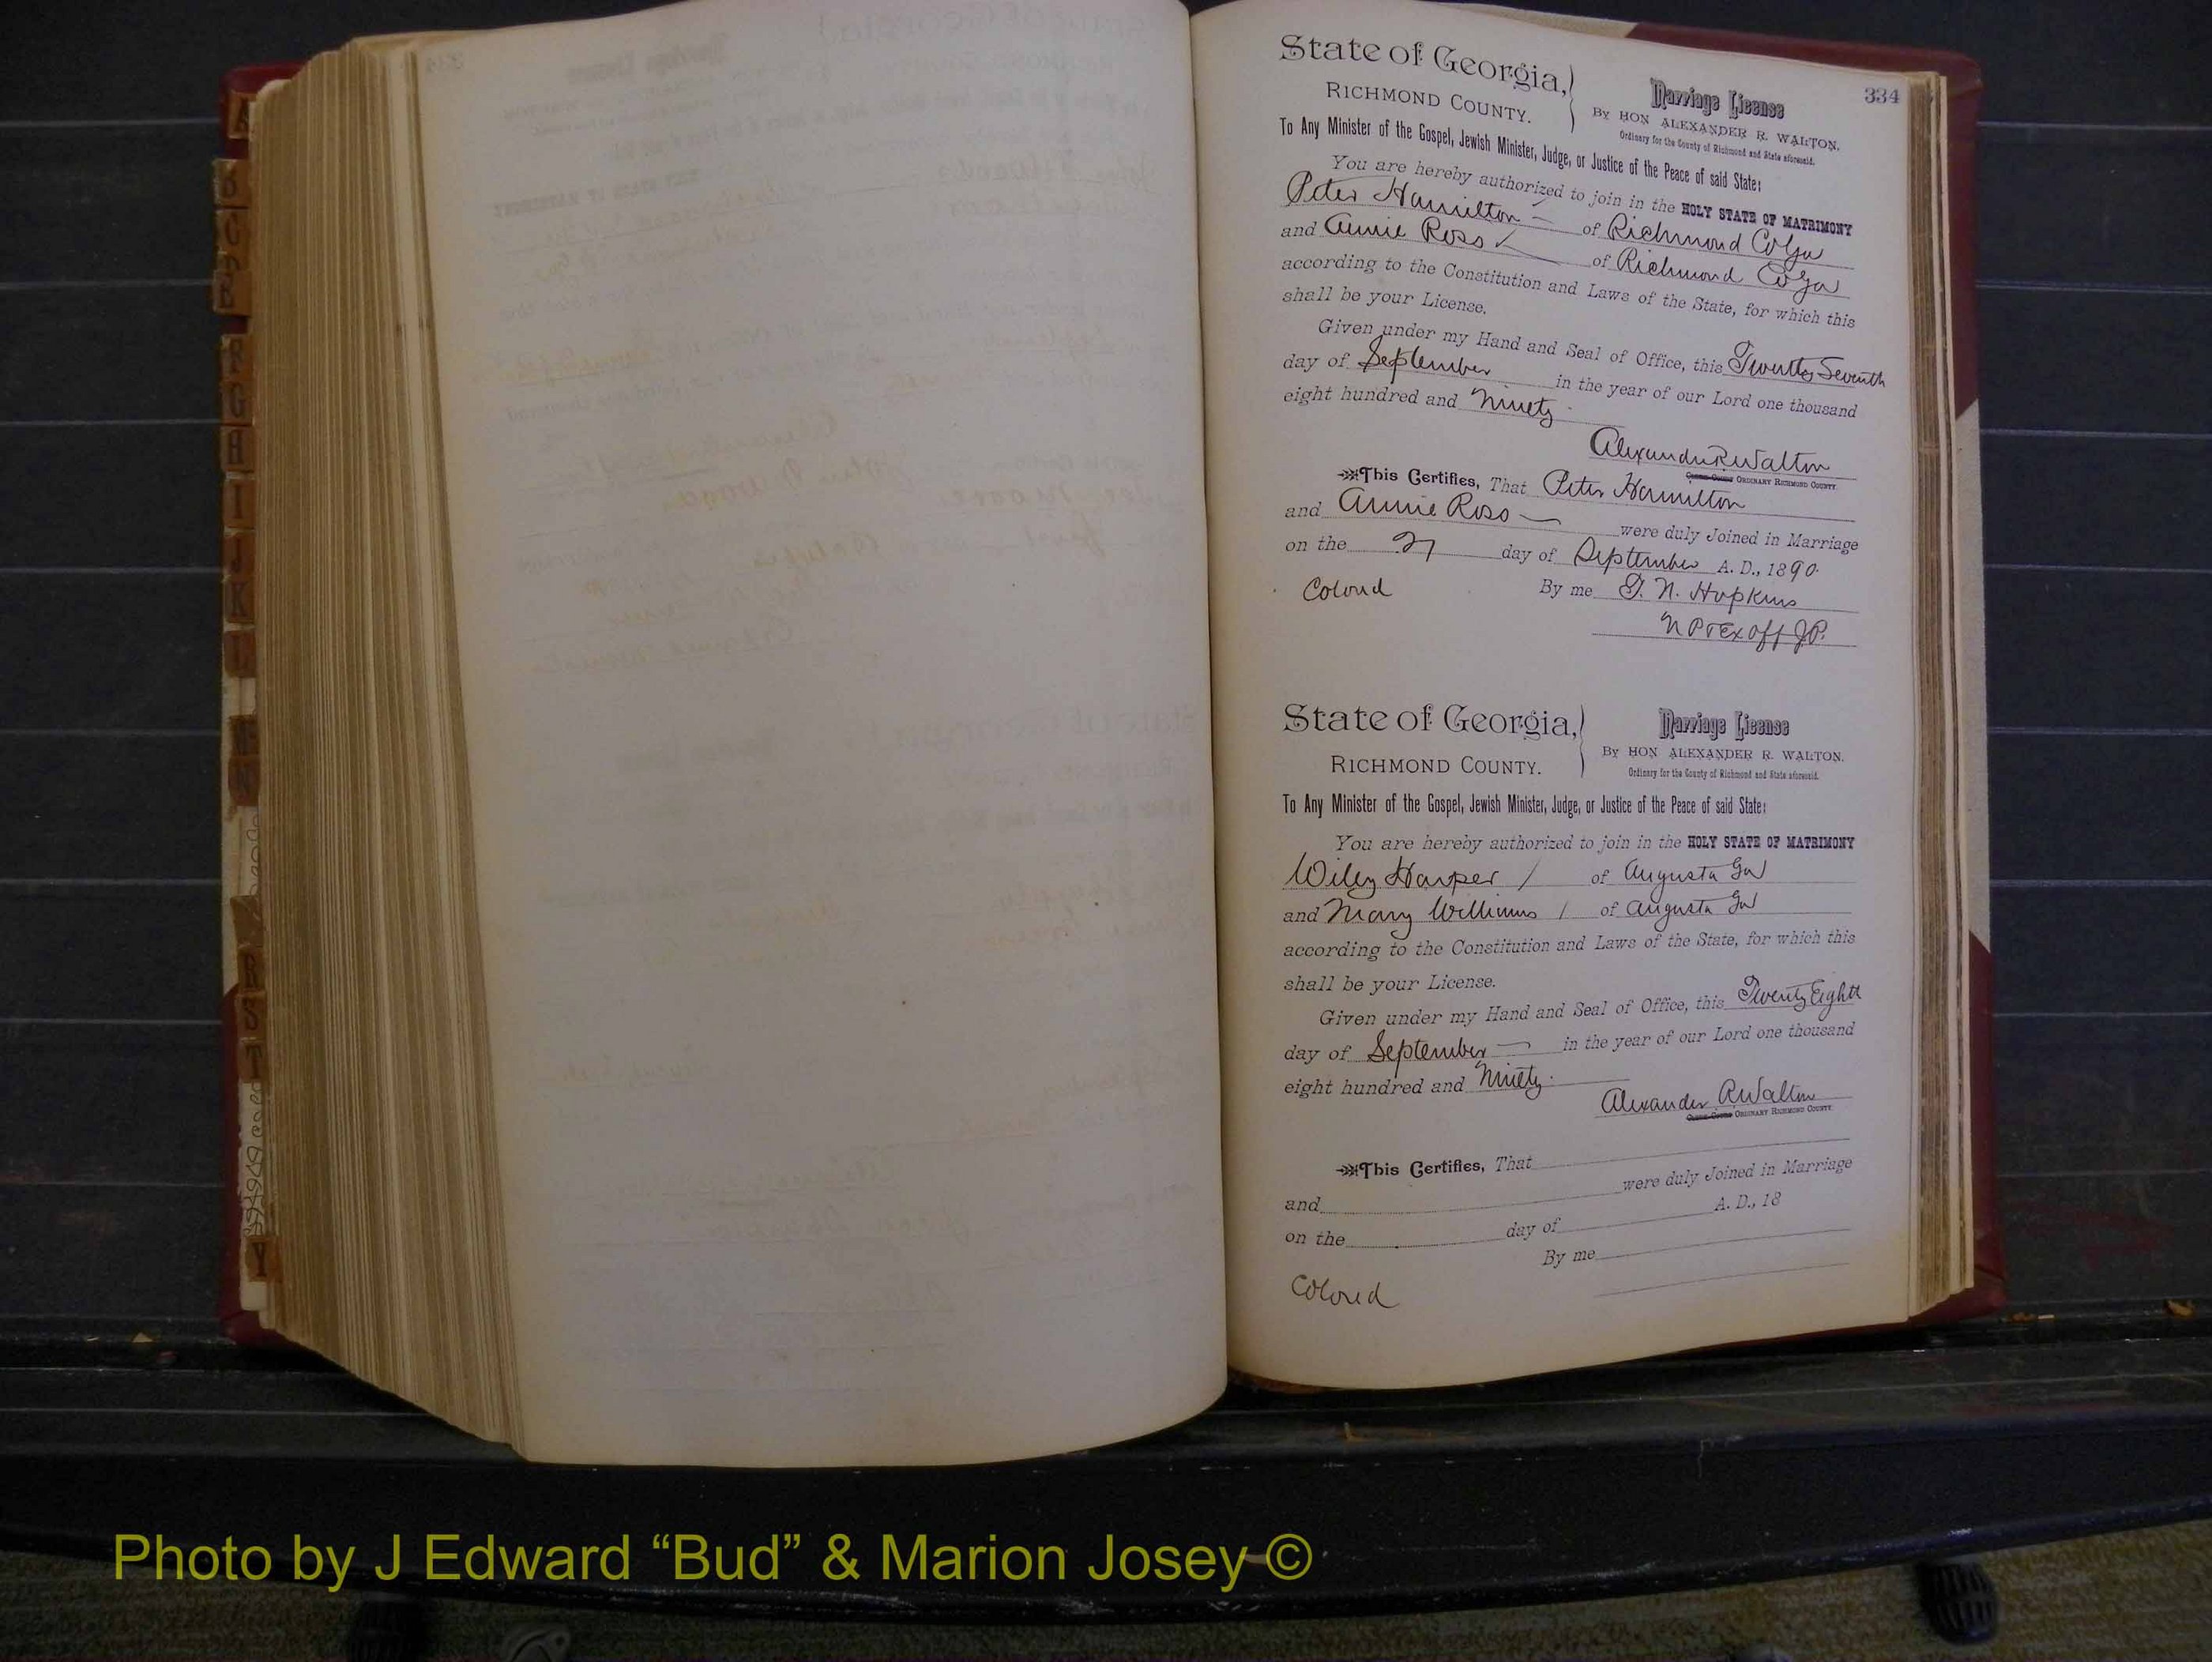 334
State of Georgia,
RICHMOND COUNTY.
Marriage License
By HON ALEXANDER R. WALTON,
Ordinary for the County of Richmond and State aforesaid.
To Any Minister of the Gospel, Jewish Minister, Judge, or Justice of the Peace of said State:
You are hereby authorized to join in the HOLY STATE OF MATRIMONY
Peter Hamilton of Richmond Co Ga
and Annie Ross of Richmond Co Ga
according to the Constitution and Laws of the State, for which this
shall be your License.
Given under my Hand and Seal of Office, this Twenty Seventh
day of September in the year of our Lord one thousand
eight hundred and Ninety
Alexander R Walton
ORDINARY RICHMOND COUNTY.
This Certifies, That Peter Hamilton
and Annie Ross were duly Joined in Marriage
on the 27 day of September A. D., 1890.
Colored By me N. Hopkins
N P & Ex off J.P.
State of Georgia,
RICHMOND COUNTY.
Marriage License
By HON ALEXANDER R. WALTON,
Ordinary for the County of Richmond and State aforesaid.
To Any Minister of the Gospel, Jewish Minister, Judge, or Justice of the Peace of said State:
You are hereby authorized to join in the HOLY STATE OF MATRIMONY
Wiley Harper of Augusta Ga
and Mary Williams of Augusta Ga
according to the Constitution and Laws of the State, for which this
shall be your License.
Given under my Hand and Seal of Office, this Twenty Eighth
day of September in the year of our Lord one thousand
eight hundred and Ninety
Alexander R Walton
ORDINARY RICHMOND COUNTY.
This Certifies, That
and were duly Joined in Marriage
on the day of A. D., 18
By me
Colored
Photo by J Edward “Bud” & Marion Josey ©